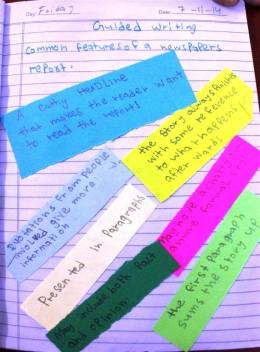 Day Friday Date: 7-11-14
Guided Writing
Common features of a newspapers
report.
A cathy HeaDLine
that makes the reader want
to read the report!
the story always finishs
with some reference
to what happens
after ward!
Quotations from people
involved give more
information
Presented in Paragraphs
May include both Fact
and opinion
the first Paragraph
sums the story up